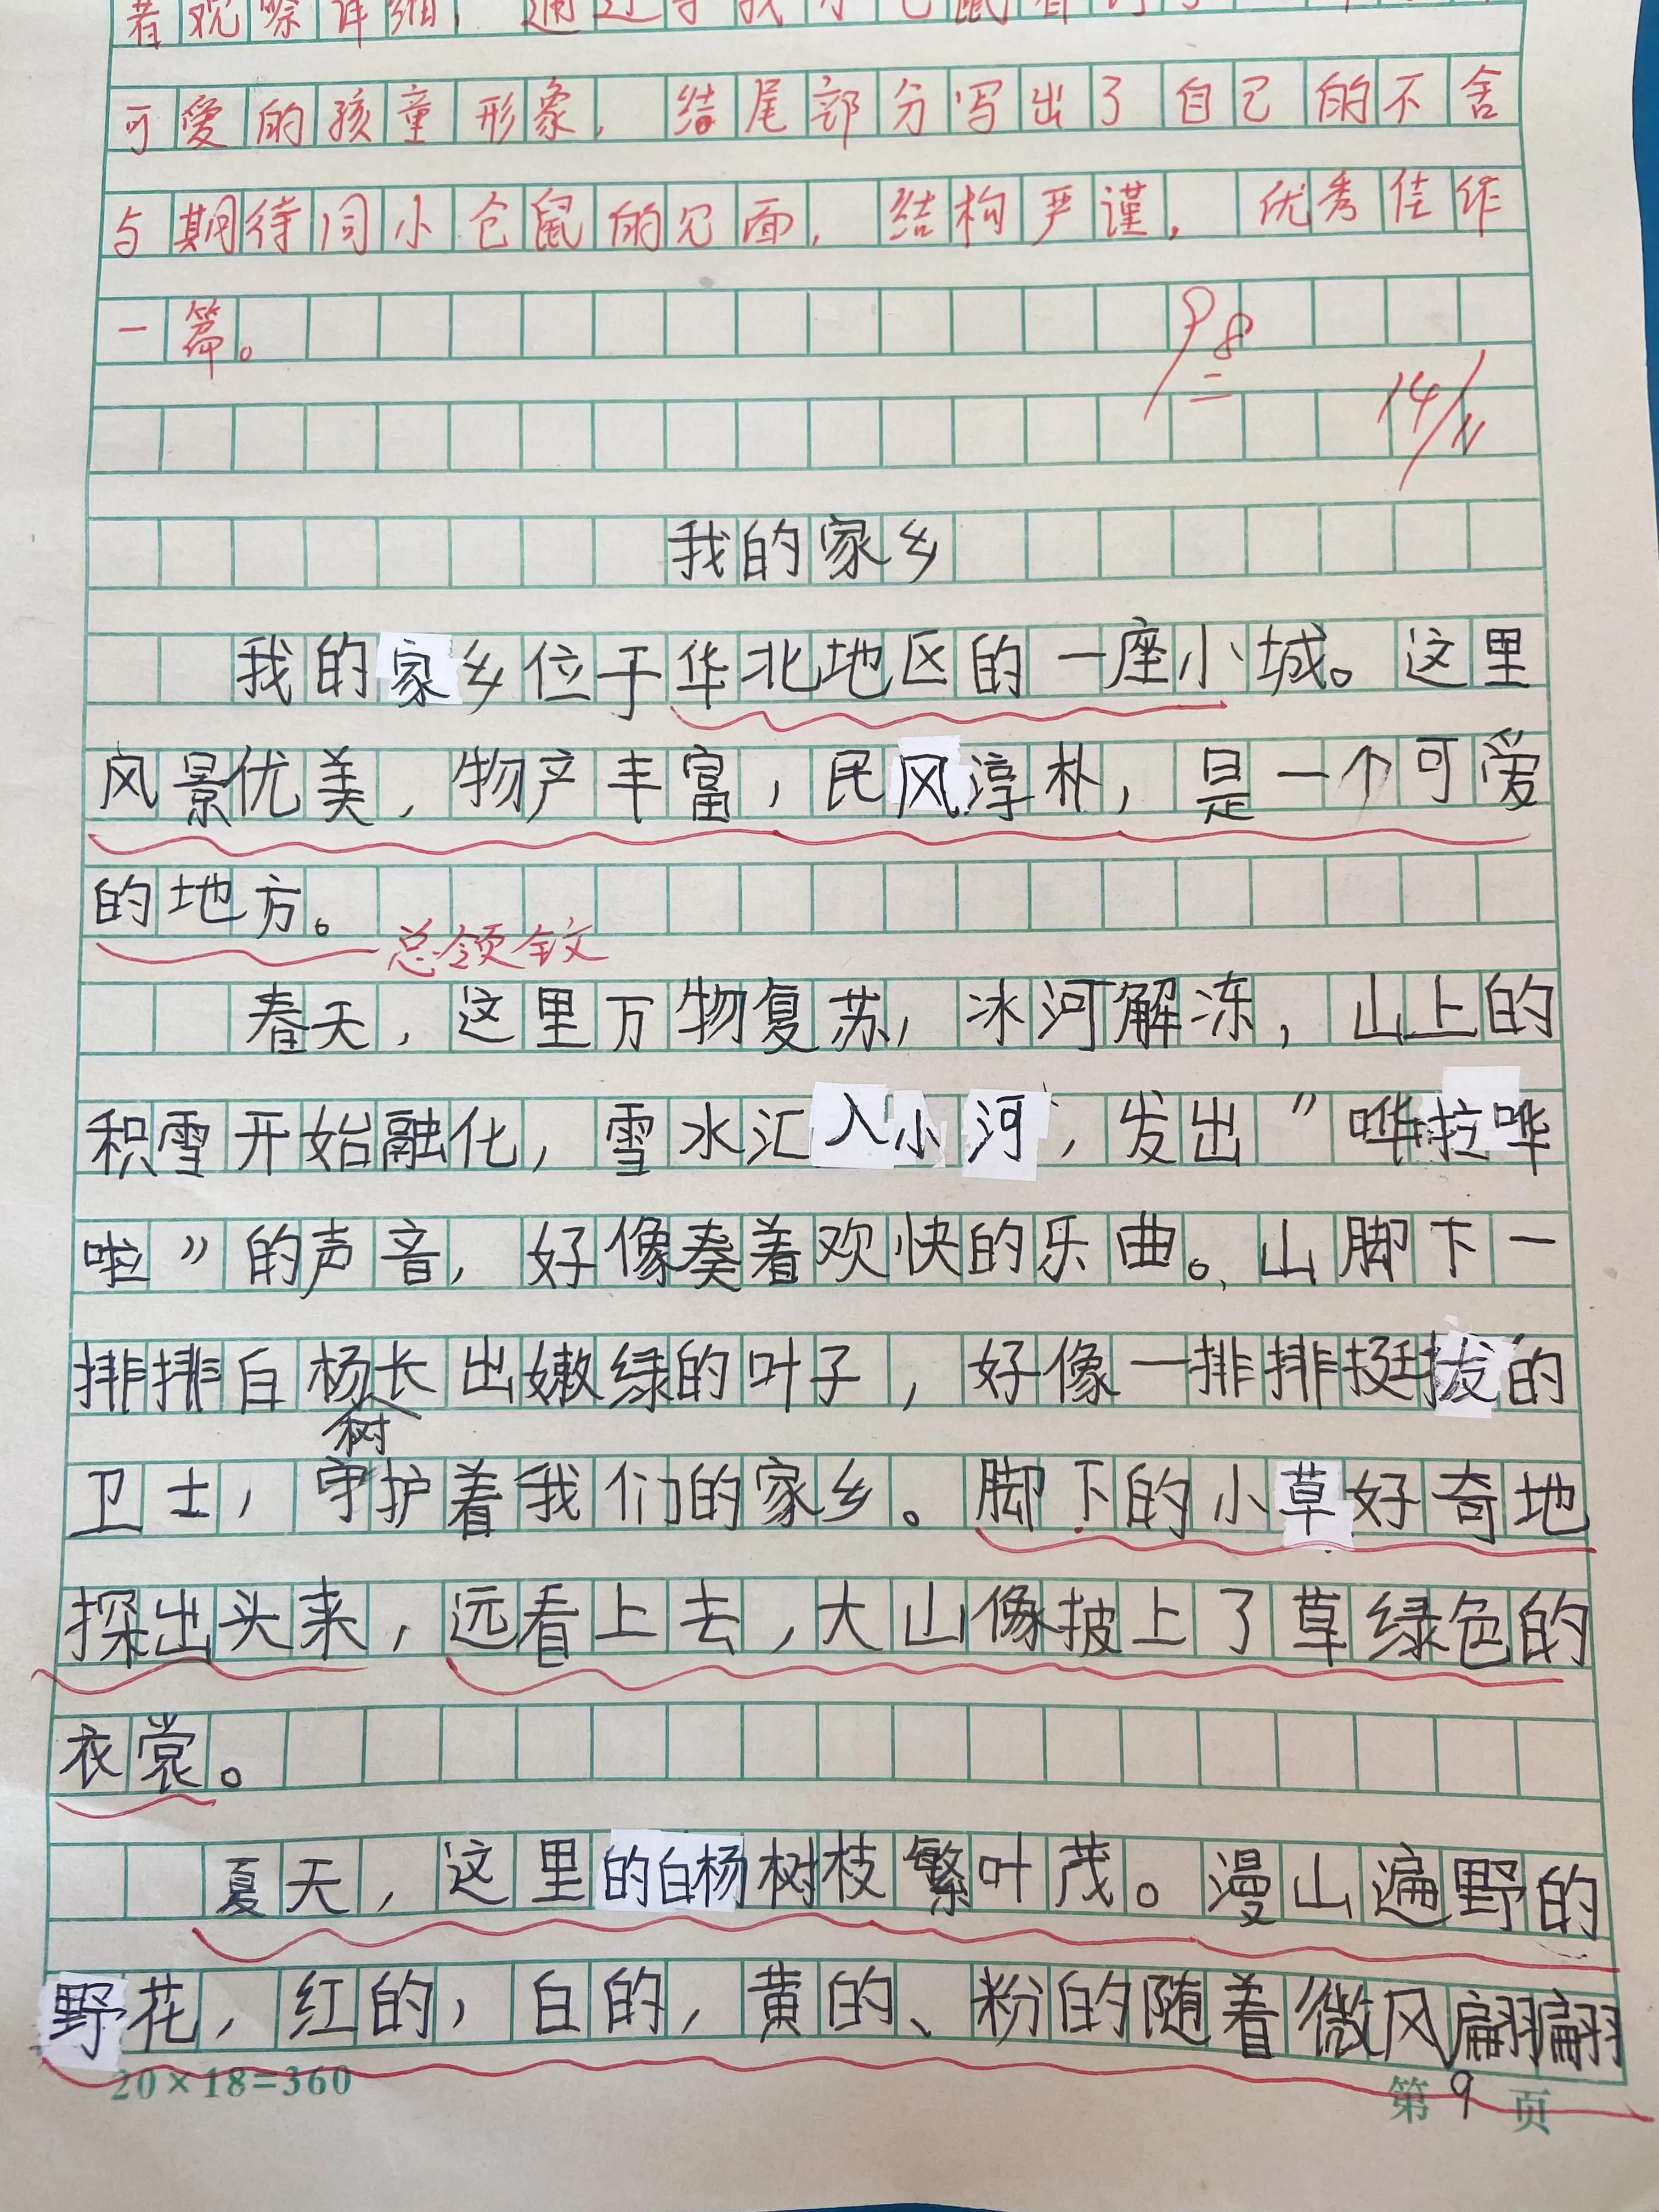 着观察详细，通过
可爱的孩童形象，结尾部分写出了自己的不舍
与期待同小仓鼠的见面，结构严谨，优秀佳作
一篇。
98
14/11
我的家乡
我的家乡位于华北地区的一座小城。这里
风景优美，物产丰富，民风淳朴，是一个可爱
的地方。
总领全文
春天，这里万物复苏，冰河解冻，山上的
积雪开始融化，雪水汇入小河，发出"哗拉哗
啦"的声音，好像奏着欢快的乐曲。山脚下一
排排白杨树长出嫩绿的叶子，好像一排排挺拔的
卫士，守护着我们的家乡。脚下的小草好奇地
探出头来，远看上去，大山像披上了草绿色的
衣裳。
夏天，这里的白杨树枝繁叶茂。漫山遍野的
野花，红的，白的，黄的、粉的随着微风翩翩
20×18=360
第9页